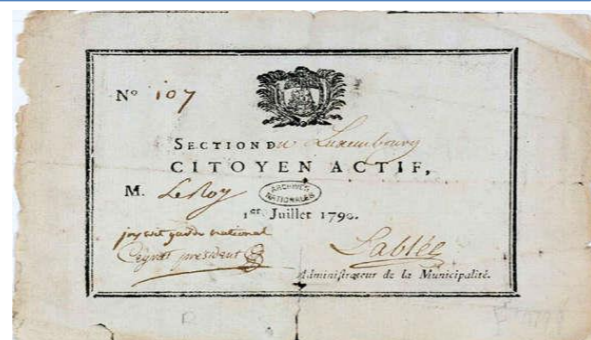 Nº 107
SECTION Du Luxembourg
CITOYEN ACTIF,
M. LeRoy
ARCHIVES NATIONALES
1er. Juillet 1790.
garde national
president
Lablée
Administrateur de la Municipalité.